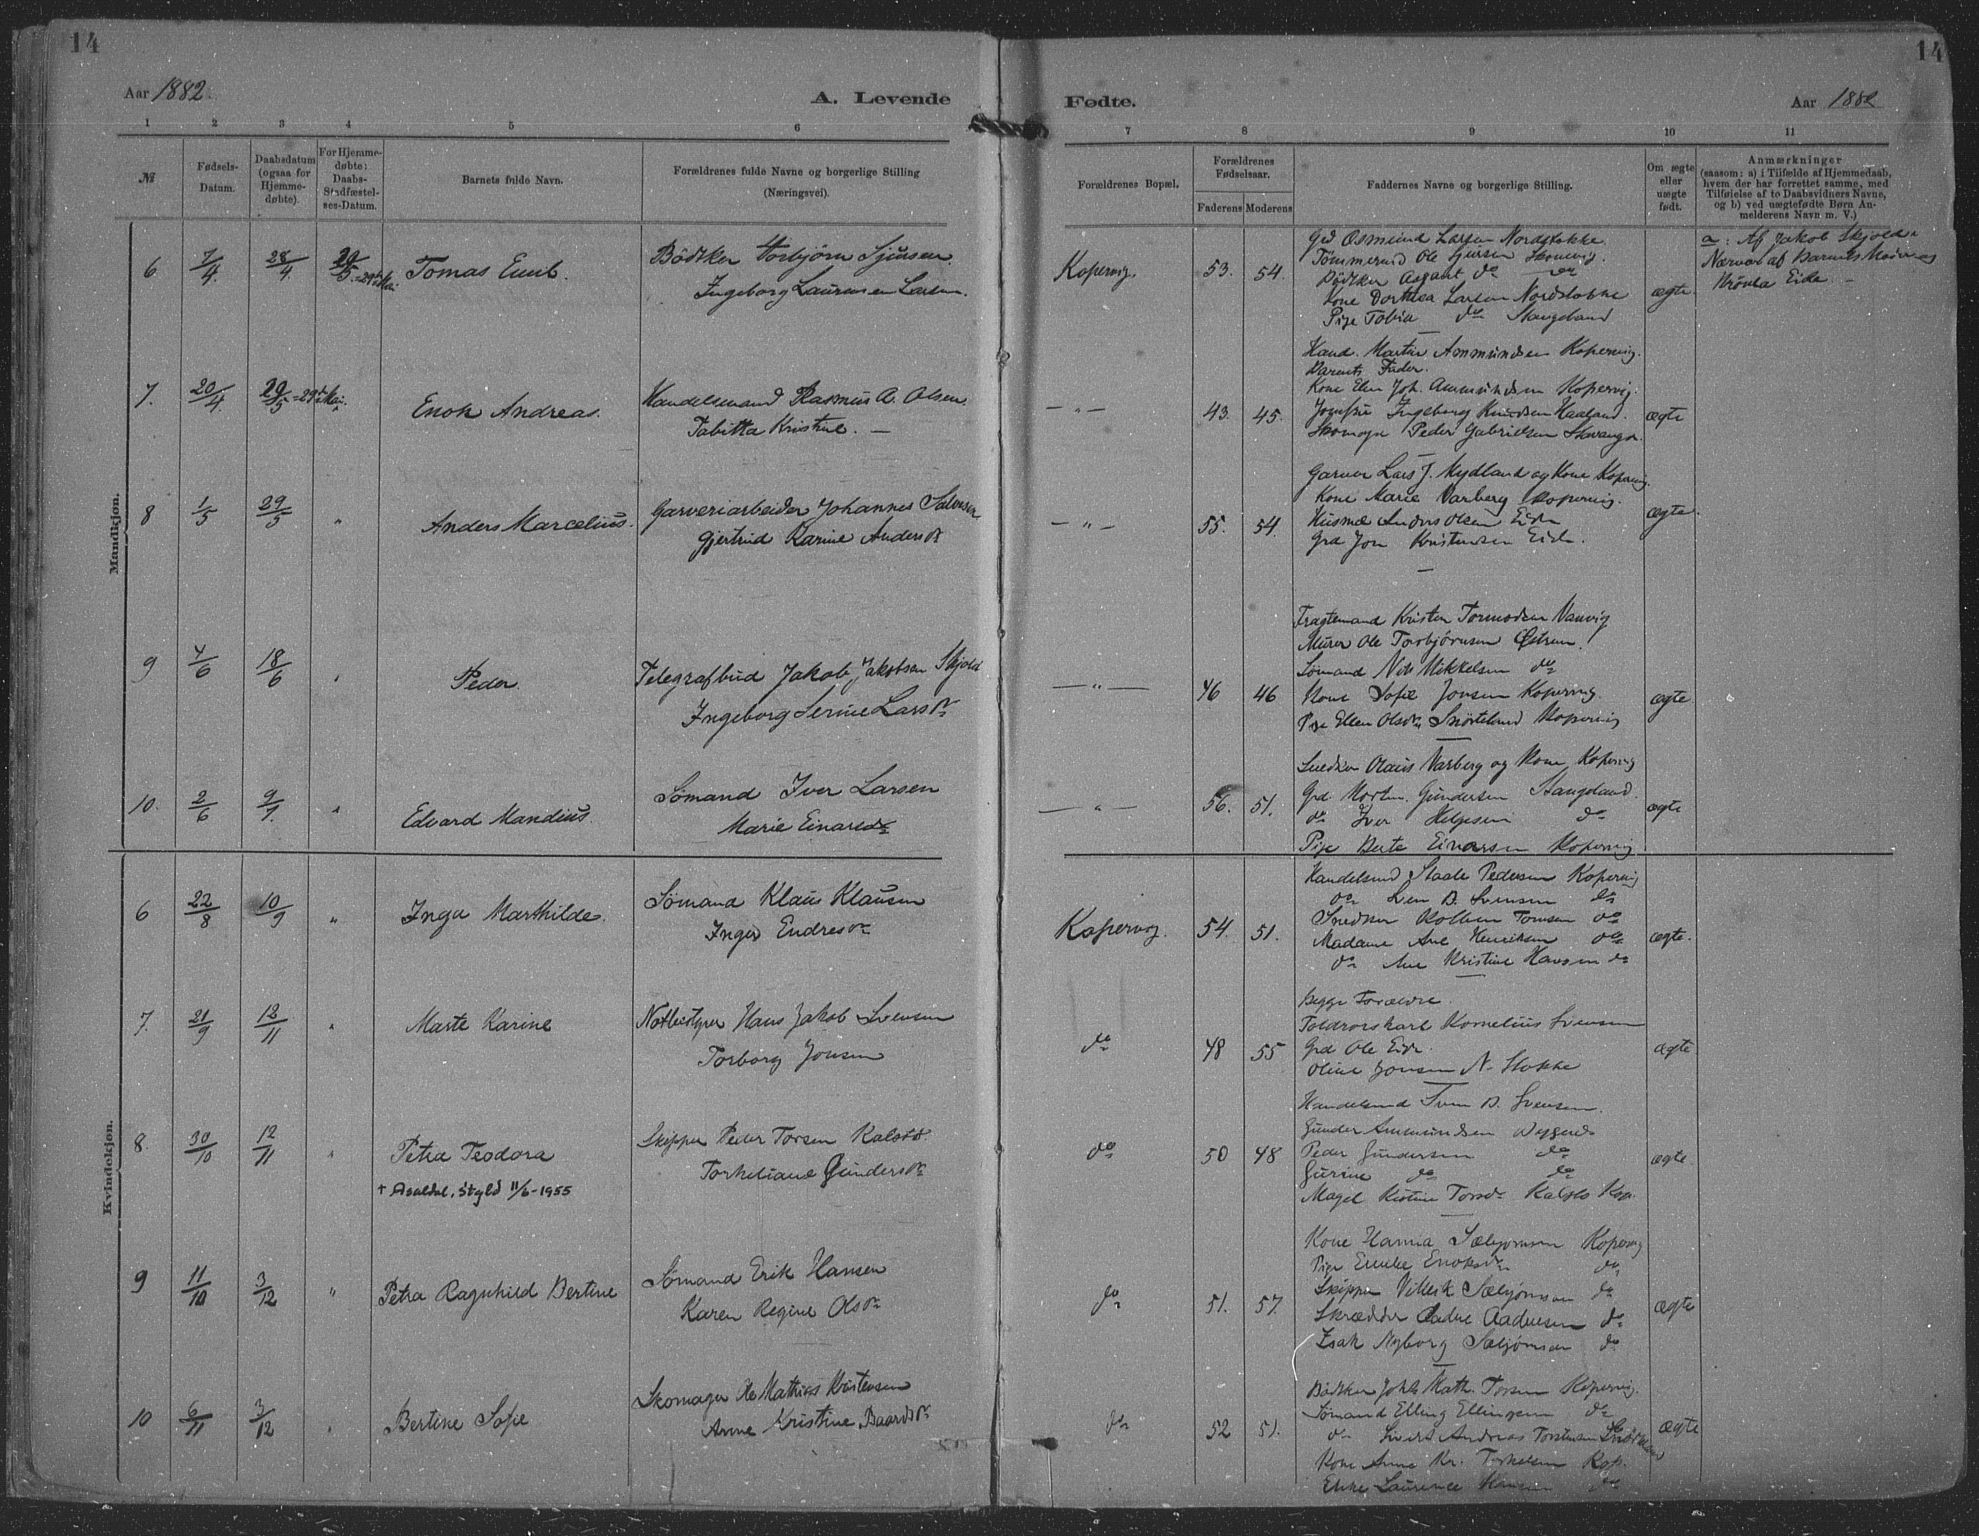 14
14
Aar 1882.
A. Levende
Fødte.
Aar 1882
1 2 3 4 5 6 7 8 9 10 11
№
Fødsels-
Datum.
Daabsdatum
(ogsaa for
Hjemme-
døbte).
For Hjemme-
døbte:
Daabs-
Stadfæstel-
ses-Datum.
Barnets fulde Navn.
Forældrenes fulde Navne og borgerlige Stilling
(Næringsvei).
Forældrenes Bopæl.
Forældrenes
Fødselsaar.
Faderens Moderens
Faddernes Navne og borgerlige Stilling.
Om ægte
eller
uægte
født.
Anmærkninger
(saasom: a) i Tilfælde af Hjemmedaab,
hvem der har forrettet samme, med
Tilføielse af to Daabsvidners Navne,
og b) ved uægtefødte Børn An-
melderens Navn m. V.)
Mandkjøn.
6 7/4 28/4 29/5 = 29de Mai Tomas Emil.
Bödker Torbjörn Sjursen
Ingeborg Laurensen Larsen.
Kopervig. 53. 54.
Grd Osmund Larsen Nordstokke.
Tömmermd Ole Sjursen Skonevig.
Bödker Asgaut do do
Kone Dorthea Larsen Nordstokke
Pige Tobia do Stangeland
ægte.
a: Af Jakob Skjold i
Nærvær af Barnets Moder og
Eide. —
7. 20/4 29/5 = 29de Mai. Enok Andreas.
Handelsmand Rasmus A. Olsen
Tabitta Kristine. —
— " — 43. 45.
Hand. Martin Ammundsen Kopervig.
Barnets Fader.
Kone Elen Joh. Ammundsen Kopervig.
Jomfru Ingeborg Knudsen Haaland.
Skomager Peder Gabrielsen Stavanger.
ægte
8 1/5 29/5 " Anders Marcelius.
Garveriarbeider Johannes
Gjertrud Karine Andersdr
— " — 55. 54.
Garver Lars J. Mydland og Kone Kopervig.
Kone Marie Varberg Kopervig.
Husmd Anders Olsen Eide
Grd Jon Kristensen Eide.
ægte.
9 4/6 18/6 " Peder.
Telegrafbud Jakob Jakobsen Skjold
Ingeborg Serine Larsdr
— " — 46 46
Fragtemand Kristen Tormodsen
Murer Ole Torbjörnsen Östrem
Sømand Nils Mikkelsen do
Kone Sofie Jonsen Kopervig.
Pige Ellen Olsdr Snörteland Kopervig
ægte
10. 2/6 9/7. " Edvard Mandius.
Sømand Iver Larsen
Marie Einarsdr
— " — 56. 51.
Snedker Olaus Varberg og Kone, Kopervig
Grd Morten Gundersen Stangeland.
do Iver Helgesen do
Pige Berte Einarsen Kopervig
ægte
Kvindekjøn.
6 22/8 10/9 " Inga Marthilde.
Sømand Klaus Klausen
Inger Endresdr
Kopervig. 54. 51.
Handelsmd Staale Pedersen Kopervig
do Sven B. Svensen do
Snedker Kolben Tomsen do
Madame Ane Henriksen do
do Ane Kristine Hansen do
ægte.
7. 21/9 12/11 " Marte Karine
Hans Jakob Svensen
Torborg Jonsen
do 48 55
Begge Forældre.
Toldrorskarl Kornelius Svensen
Grd Ole Eide.
Oline Jonsen N. Stokke
ægte
8. 30/10 12/11 " Petra Teodora
† Asaldal, Skjold 11/6-1955
Skipper Peder Torsen Kalstö.
Torkeliane Gundersdr
do 50 48
Handelsmd Sven B. Svensen.
Gunder Ammundsen
Peder Gundersen do
Gurine do do
Magel Kistine Torsdr Kalstö Kop.
ægte
9 11/10 3/12 " Petra Ragnhild Bertine
Sømand Erik Hansen
Karen Regine Olsdr
do 51. 57.
Kone Hanna Sæbjörnsen Kopervig
Pige Emelie Enoksdr do
Skipper Villesk Sæbjörnsen do
Skrædder Aadne Aadnesen do
Isak Nyborg Sæbjörnsen do
ægte
10 6/11 3/12 " Bertine Sofie
Skomager Ole Mathias Kristensen
Anne Kristine Baardsdr
do 52 51.
Bödker Johs Math. Torsen Kopervig.
Sømand Elling Ellingsen do
do Sivert Andreas Torstensen Snörteland
Kone Anne Kr. Torkelsen Kop.
Enke Laurence Hansen do
ægte